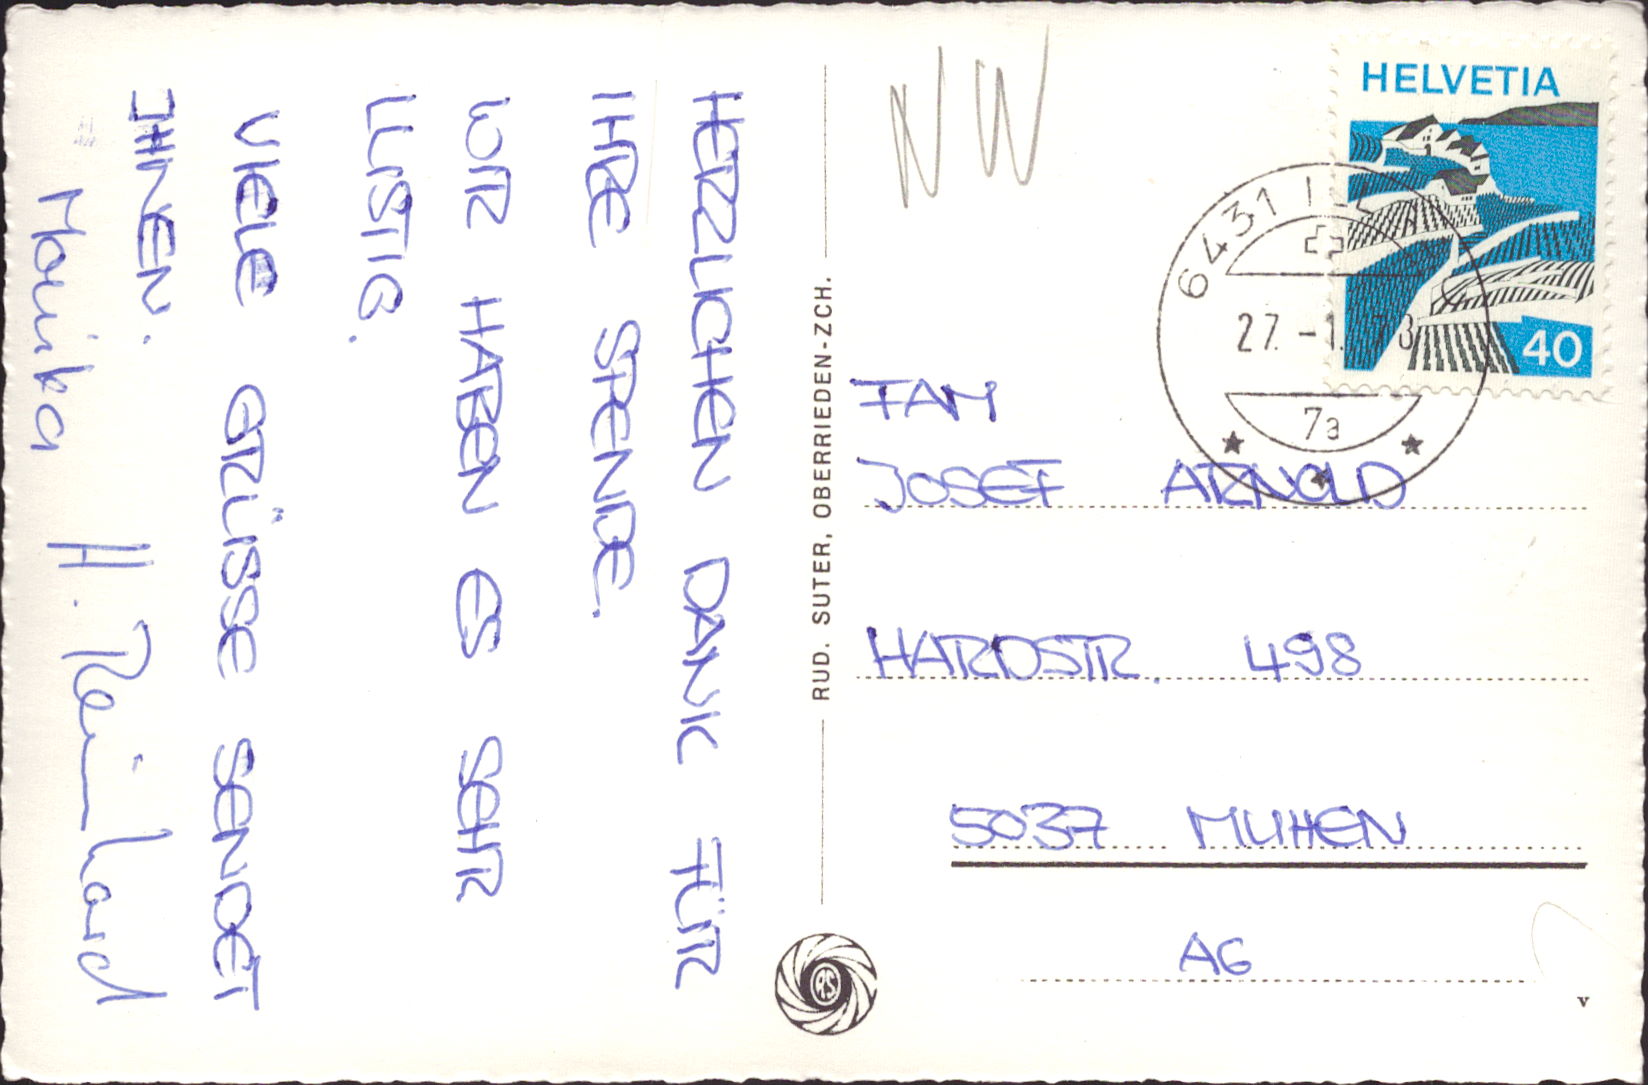 HERZLICHEN DANK FÜR
IHRE SPENDE.
WIR HABEN ES SEHR
LUSTIG.
VIELE GRÜSSE SENDET
IHNEN.
Monika H. Reinhard
RUD. SUTER, OBERRIEDEN-ZCH.
RS
NW
HELVETIA
40
6431
27.-1.73
7a
FAM
JOSEF ARNOLD
HARDSTR. 498
5037 MUHEN
AG
v